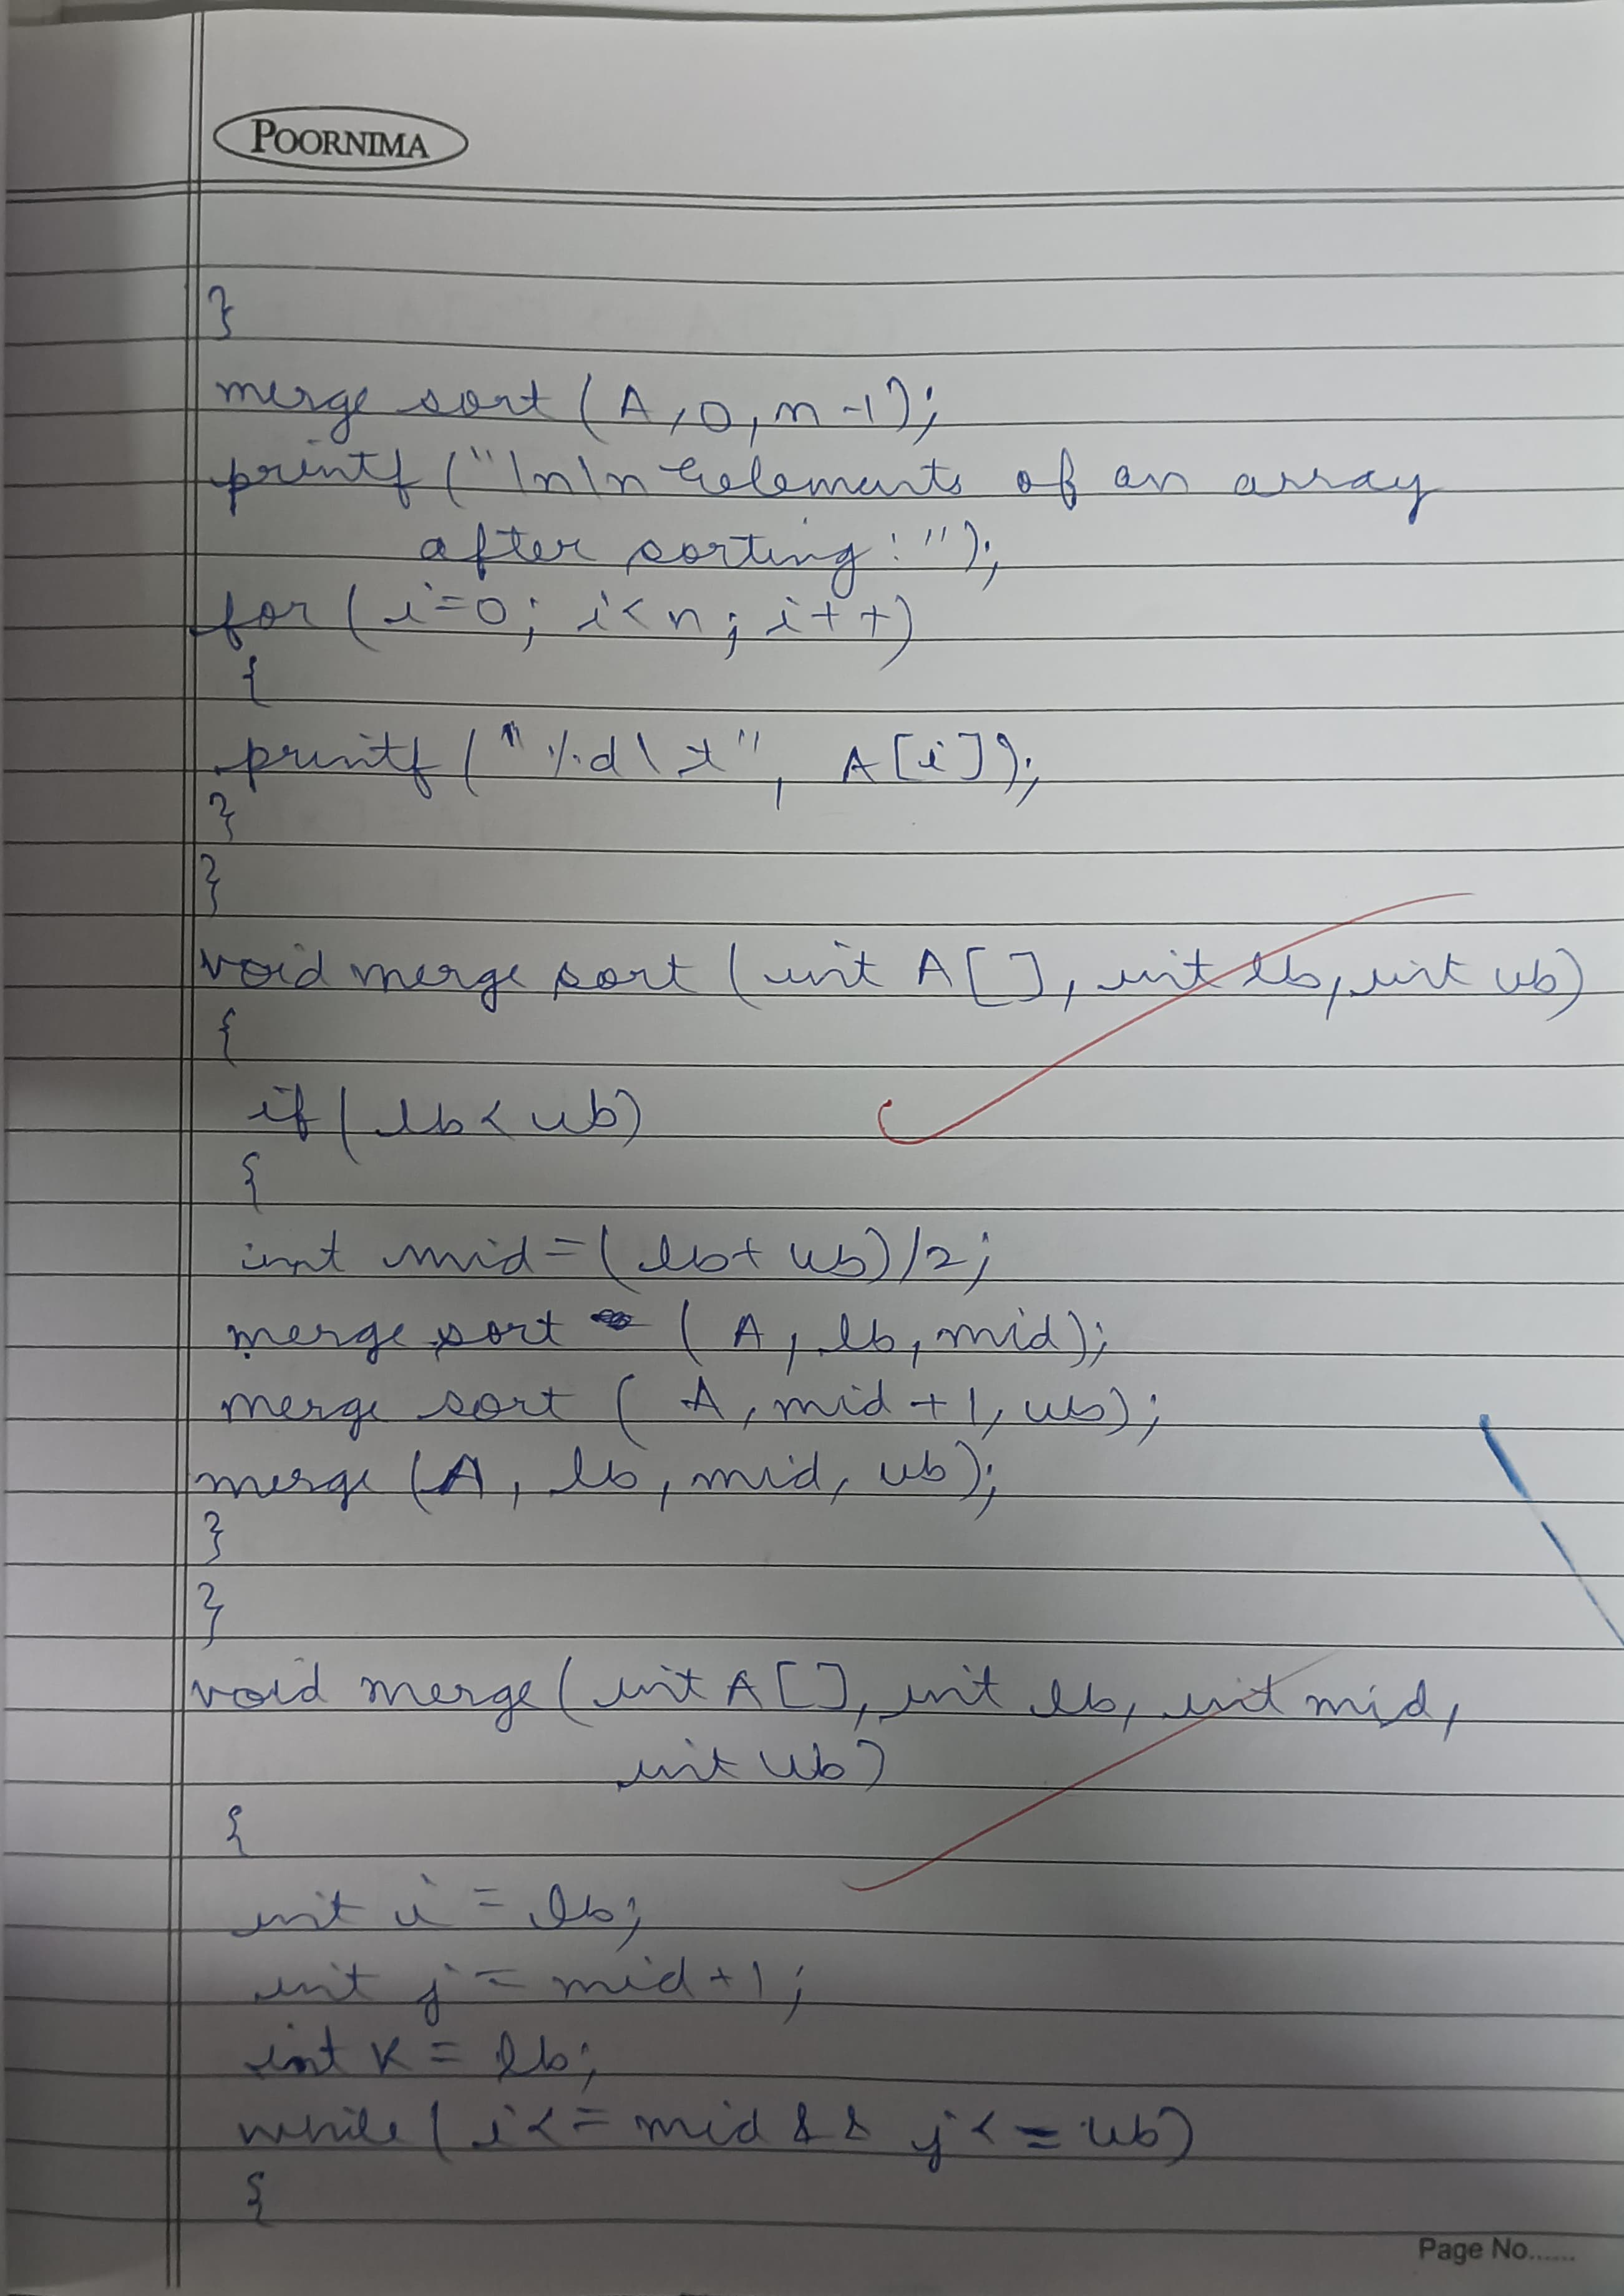 POORNIMA
}
merge sort (A, 0, n-1);
printf ("\n\n Eelements of an array
after sorting:");
for (i=0; i<n; i++)
{
printf ("%d\t", A[i]);
}
}
void merge sort (int A[], int lb, int ub)
{
if (lb < ub)
{
int mid = (lb+ ub)/2;
merge sort (A, lb, mid);
merge sort (A, mid+1, ub);
merge (A, lb, mid, ub);
}
}
void merge (int A[], int lb, int mid,
int ub)
{
int i = lb;
int j = mid+1;
int k = lb;
while (i<= mid && j<= ub)
{
Page No......